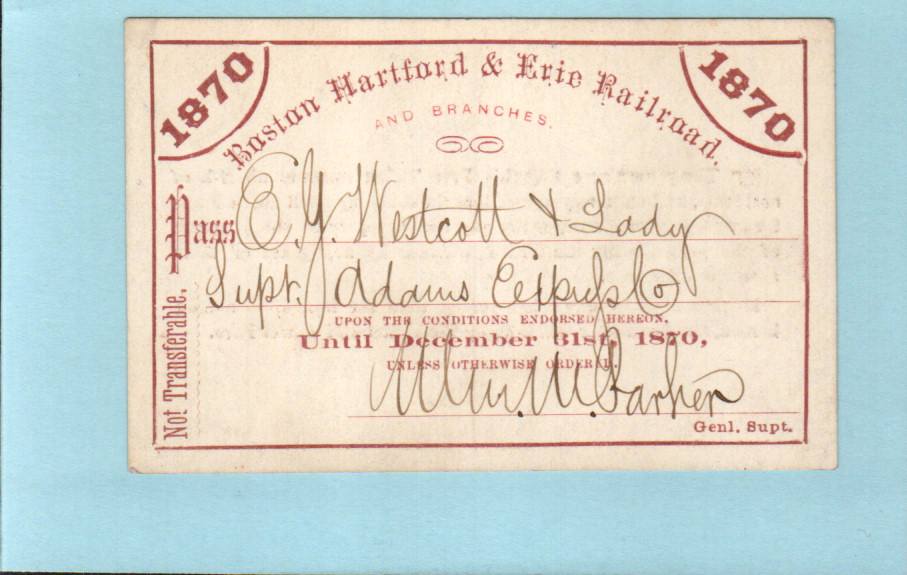 1870
1870
Boston Hartford & Erie Railroad.
AND BRANCHES.
Pass E. J. Westcott & Lady
Supt. Adams Express Co
UPON THE CONDITIONS ENDORSED HEREON,
Until December 31st, 1870,
UNLESS OTHERWISE ORDERED.
Wm. M. Parker
Genl. Supt.
Not Transferable.